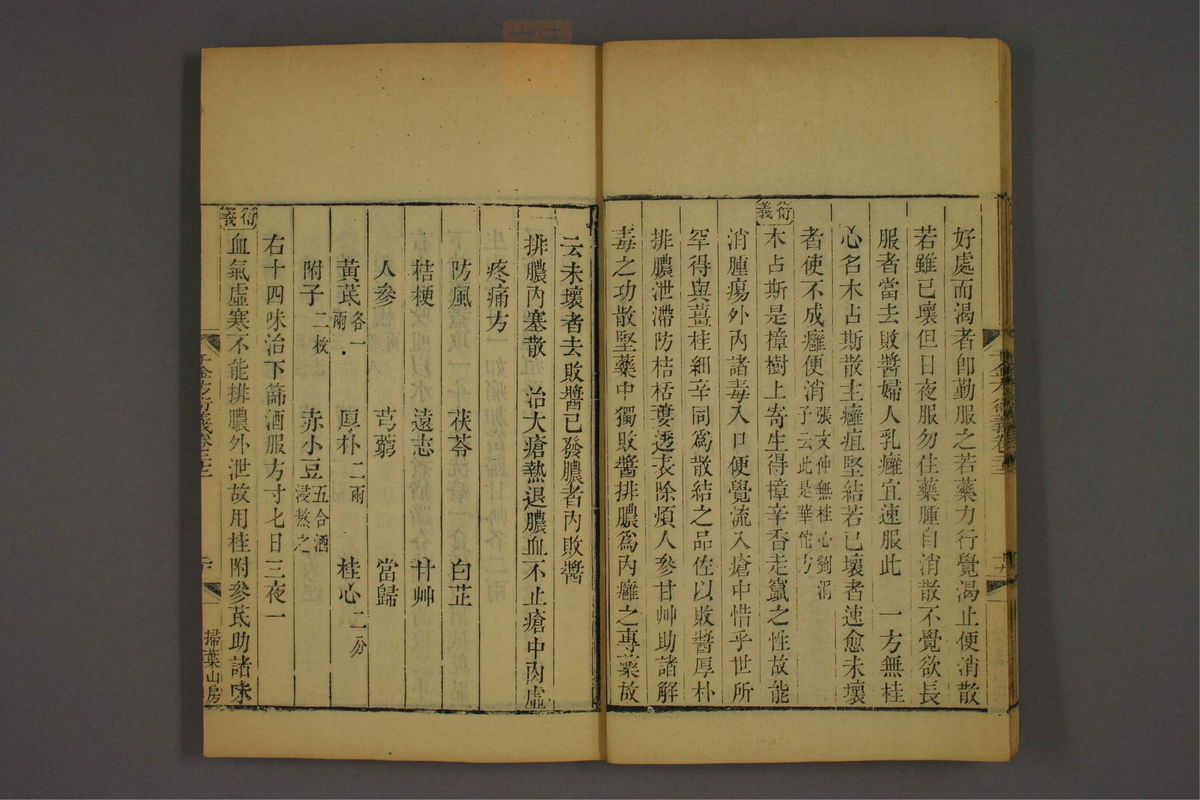 好處而渴者卽勤服之若藥力行覺渴止便消散
若雖已壞但日夜服勿住藥腫自消散不覺欲長
服者當去敗醬婦人乳癰宜速服此　一方無桂
心名木占斯散主癰疽堅結若已壞者速愈未壞
者使不成癰便消張文仲無桂心劉涓
子云此是華佗方
衍義
木占斯是樟樹上寄生得樟辛香走竄之性故能
消腫瘍外內諸毒入口便覺流入瘡中惜乎世所
罕得與薑桂細辛同爲散結之品佐以敗醬厚朴
排膿泄滯防桔栝蔞透表除煩人參甘艸助諸解
毒之功散堅藥中獨敗醬排膿爲內癰之專藥故
云未壞者去敗醬已發膿者內敗醬
排膿內塞散　治大瘡熱退膿血不止瘡中肉虛
疼痛方
防風　茯苓　白芷
桔梗　遠志　甘艸
人參　芎藭　當歸
黃芪各一
兩　厚朴二兩　桂心二分
附子二枚　赤小豆五合酒
浸熬之
右十四味治下篩酒服方寸匕日三夜一
衍義
血氣虛寒不能排膿外泄故用桂附參芪助諸味
掃葉山房